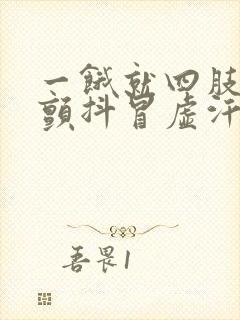 一饿就四肢
颤抖冒虚汗
吾畏1